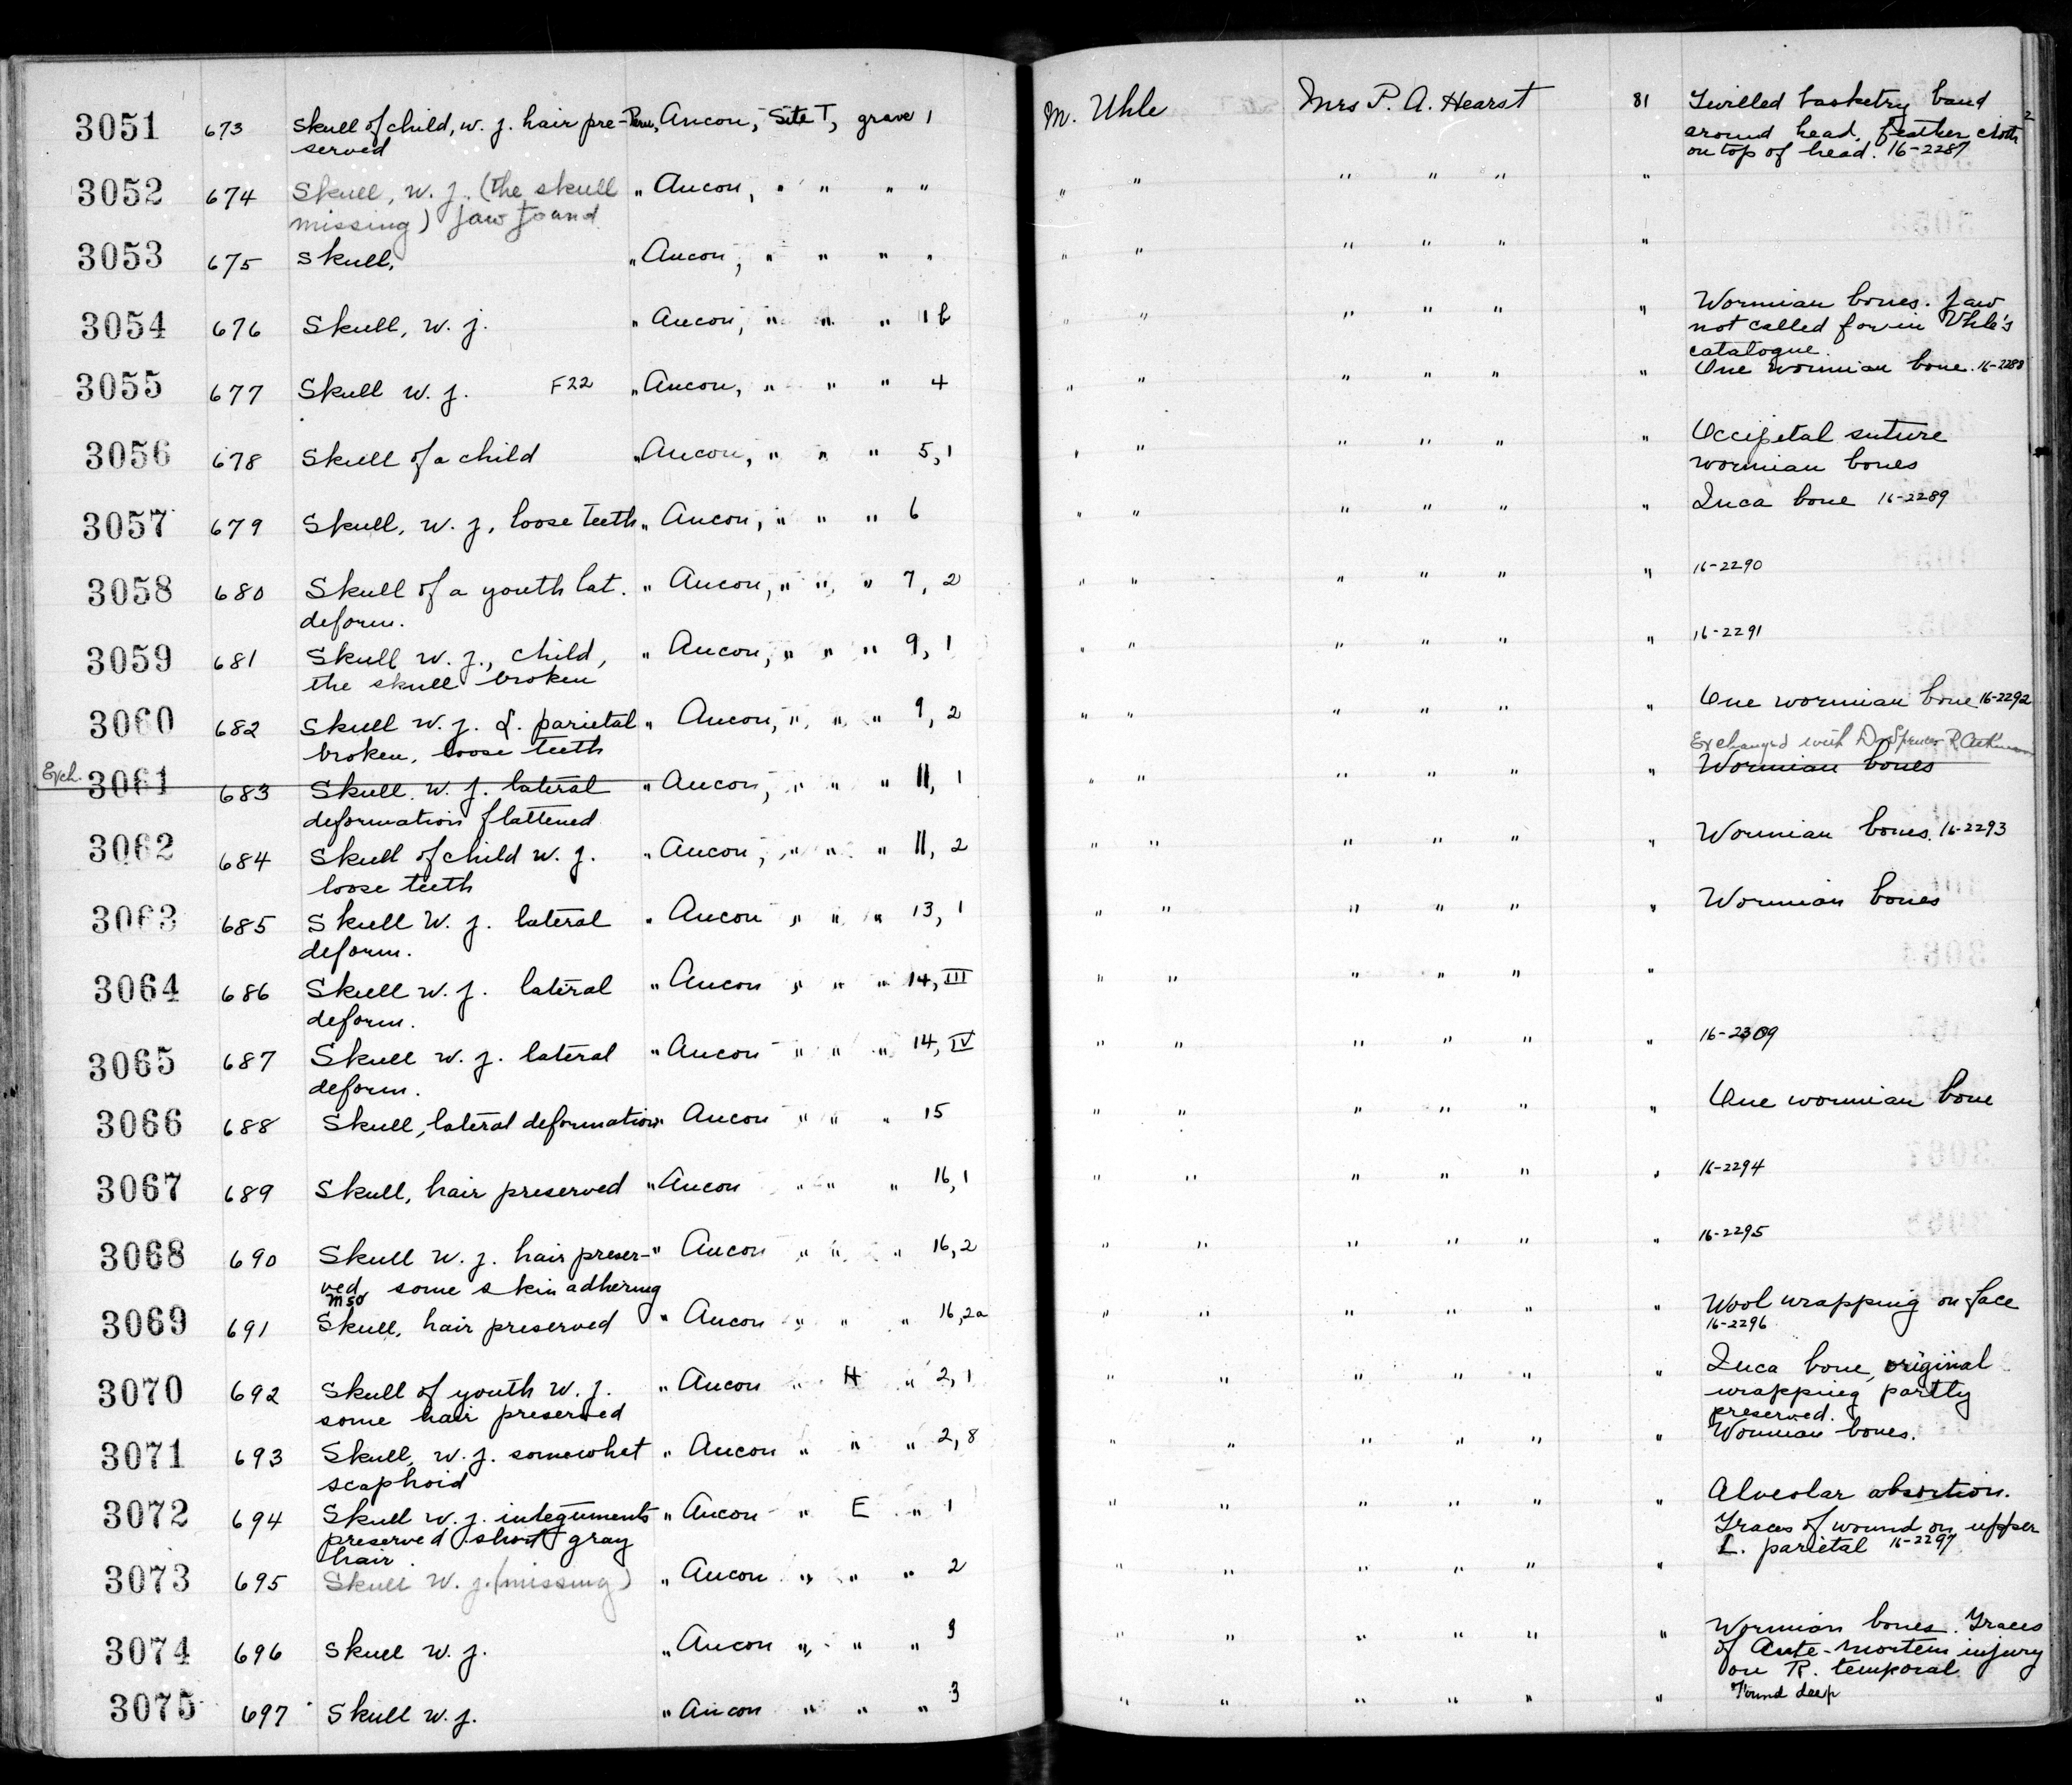 3051 673 Skull of child, w. j. hair pre- Peru, Ancon, Site T, grave 1 M. Uhle Mrs P. A. Hearst 81 Twilled basketry band
served around head, feather cloth
on top of head. 16-2287
3052 674 Skull, w. j. (the skull " Ancon, " " " " " " " " " "
missing) jaw found
3053 675 Skull, " Ancon, " " " " " " " " " "
3054 676 Skull, w. j. " Ancon, " " " 1b " " " " " " Wormian bones. Jaw
not called for in Uhle's
catalogue.
3055 677 Skull w. j. F22 " Ancon, " " " 4 " " " " " " One wormian bone. 16-2288
3056 678 Skull of a child " Ancon, " " " 5, 1 " " " " " " Occipetal suture
wormian bones
3057 679 Skull, w. j, loose teeth " Ancon, " " " 6 " " " " " " Inca bone 16-2289
3058 680 Skull of a youth lat. " Ancon, " " " 7, 2 " " " " " " 16-2290
deform.
3059 681 Skull w. j., child, " Ancon, " " " 9, 1 " " " " " " 16-2291
the skull broken
3060 682 Skull w. j. L. parietal " Ancon, " " " 9, 2 " " " " " " One wormian bone 16-2292
broken, loose teeth
Exchanged with Dr Spencer R. Atkinson
Exch. 3061 683 Skull. w. j. lateral " Ancon, " " " 11, 1 " " " " " " Wormian bones
deformation flattened
3062 684 Skull of child w. j. " Ancon, " " " 11, 2 " " " " " " Wormian bones. 16-2293
loose teeth
3063 685 Skull w. j. lateral " Ancon " " " 13, 1 " " " " " " Wormian bones
deform.
3064 686 Skull w. j. lateral " Ancon " " " 14, III " " " " " "
deform.
3065 687 Skull w. j. lateral " Ancon " " " 14, IV " " " " " " 16-2309
deform.
3066 688 Skull, lateral deformation " Ancon " " " 15 " " " " " " One wormian bone
3067 689 Skull, hair preserved " Ancon " " " 16,1 " " " " " " 16-2294
3068 690 Skull w. j. hair preser- " Ancon " " " 16,2 " " " " " " 16-2295
ved, some skin adhering
3069 691 Skull, hair preserved " Ancon " " " 16,2a " " " " " " Wool wrapping on face
16-2296
3070 692 Skull of youth w. j. " Ancon " H " 2,1 " " " " " " Inca bone, original
some hair preserved wrapping partly
preserved.
3071 693 Skull, w. j. somewhat " Ancon " " " 2,8 " " " " " " Wormian bones.
scaphoid
3072 694 Skull w. j. integuments " Ancon " E " 1 " " " " " " Alveolar absortion.
preserved short gray Traces of wound on upper
hair. L. parietal 16-2297
3073 695 Skull w. j. (missing) " Ancon " " " 2 " " " " " "
3074 696 Skull w. j. " Ancon " " " 3 " " " " " " Wormian bones. Traces
of Ante-mortem injury
on R. temporal.
3075 697 Skull w. j. " Ancon " " " 3 " " " " " " Found deep